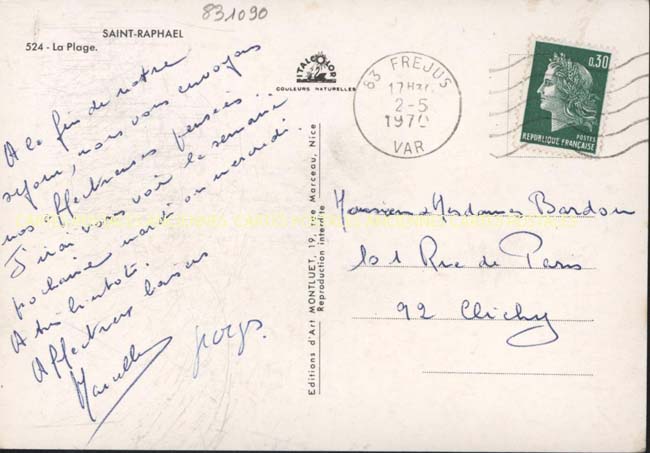 831090
SAINT-RAPHAEL
524 - La Plage.
ITALCOLOR
COULEURS NATURELLES
A la fin de notre
séjour, nous vous envoyons
nos affectueuses pensées...
J'irai vous voir la semaine
prochaine mardi ou mercredi.
A très bientôt.
Affectueux baisers
Marcelle
Editions d'Art MONTLUET, 19, rue Marceau, Nice
Reproduction interdite
83 FREJUS
17H
2-5
1970
VAR
0,30
POSTES
REPUBLIQUE FRANÇAISE
Monsieur Mesdames Bardon
101 Rue de Paris
92 Clichy